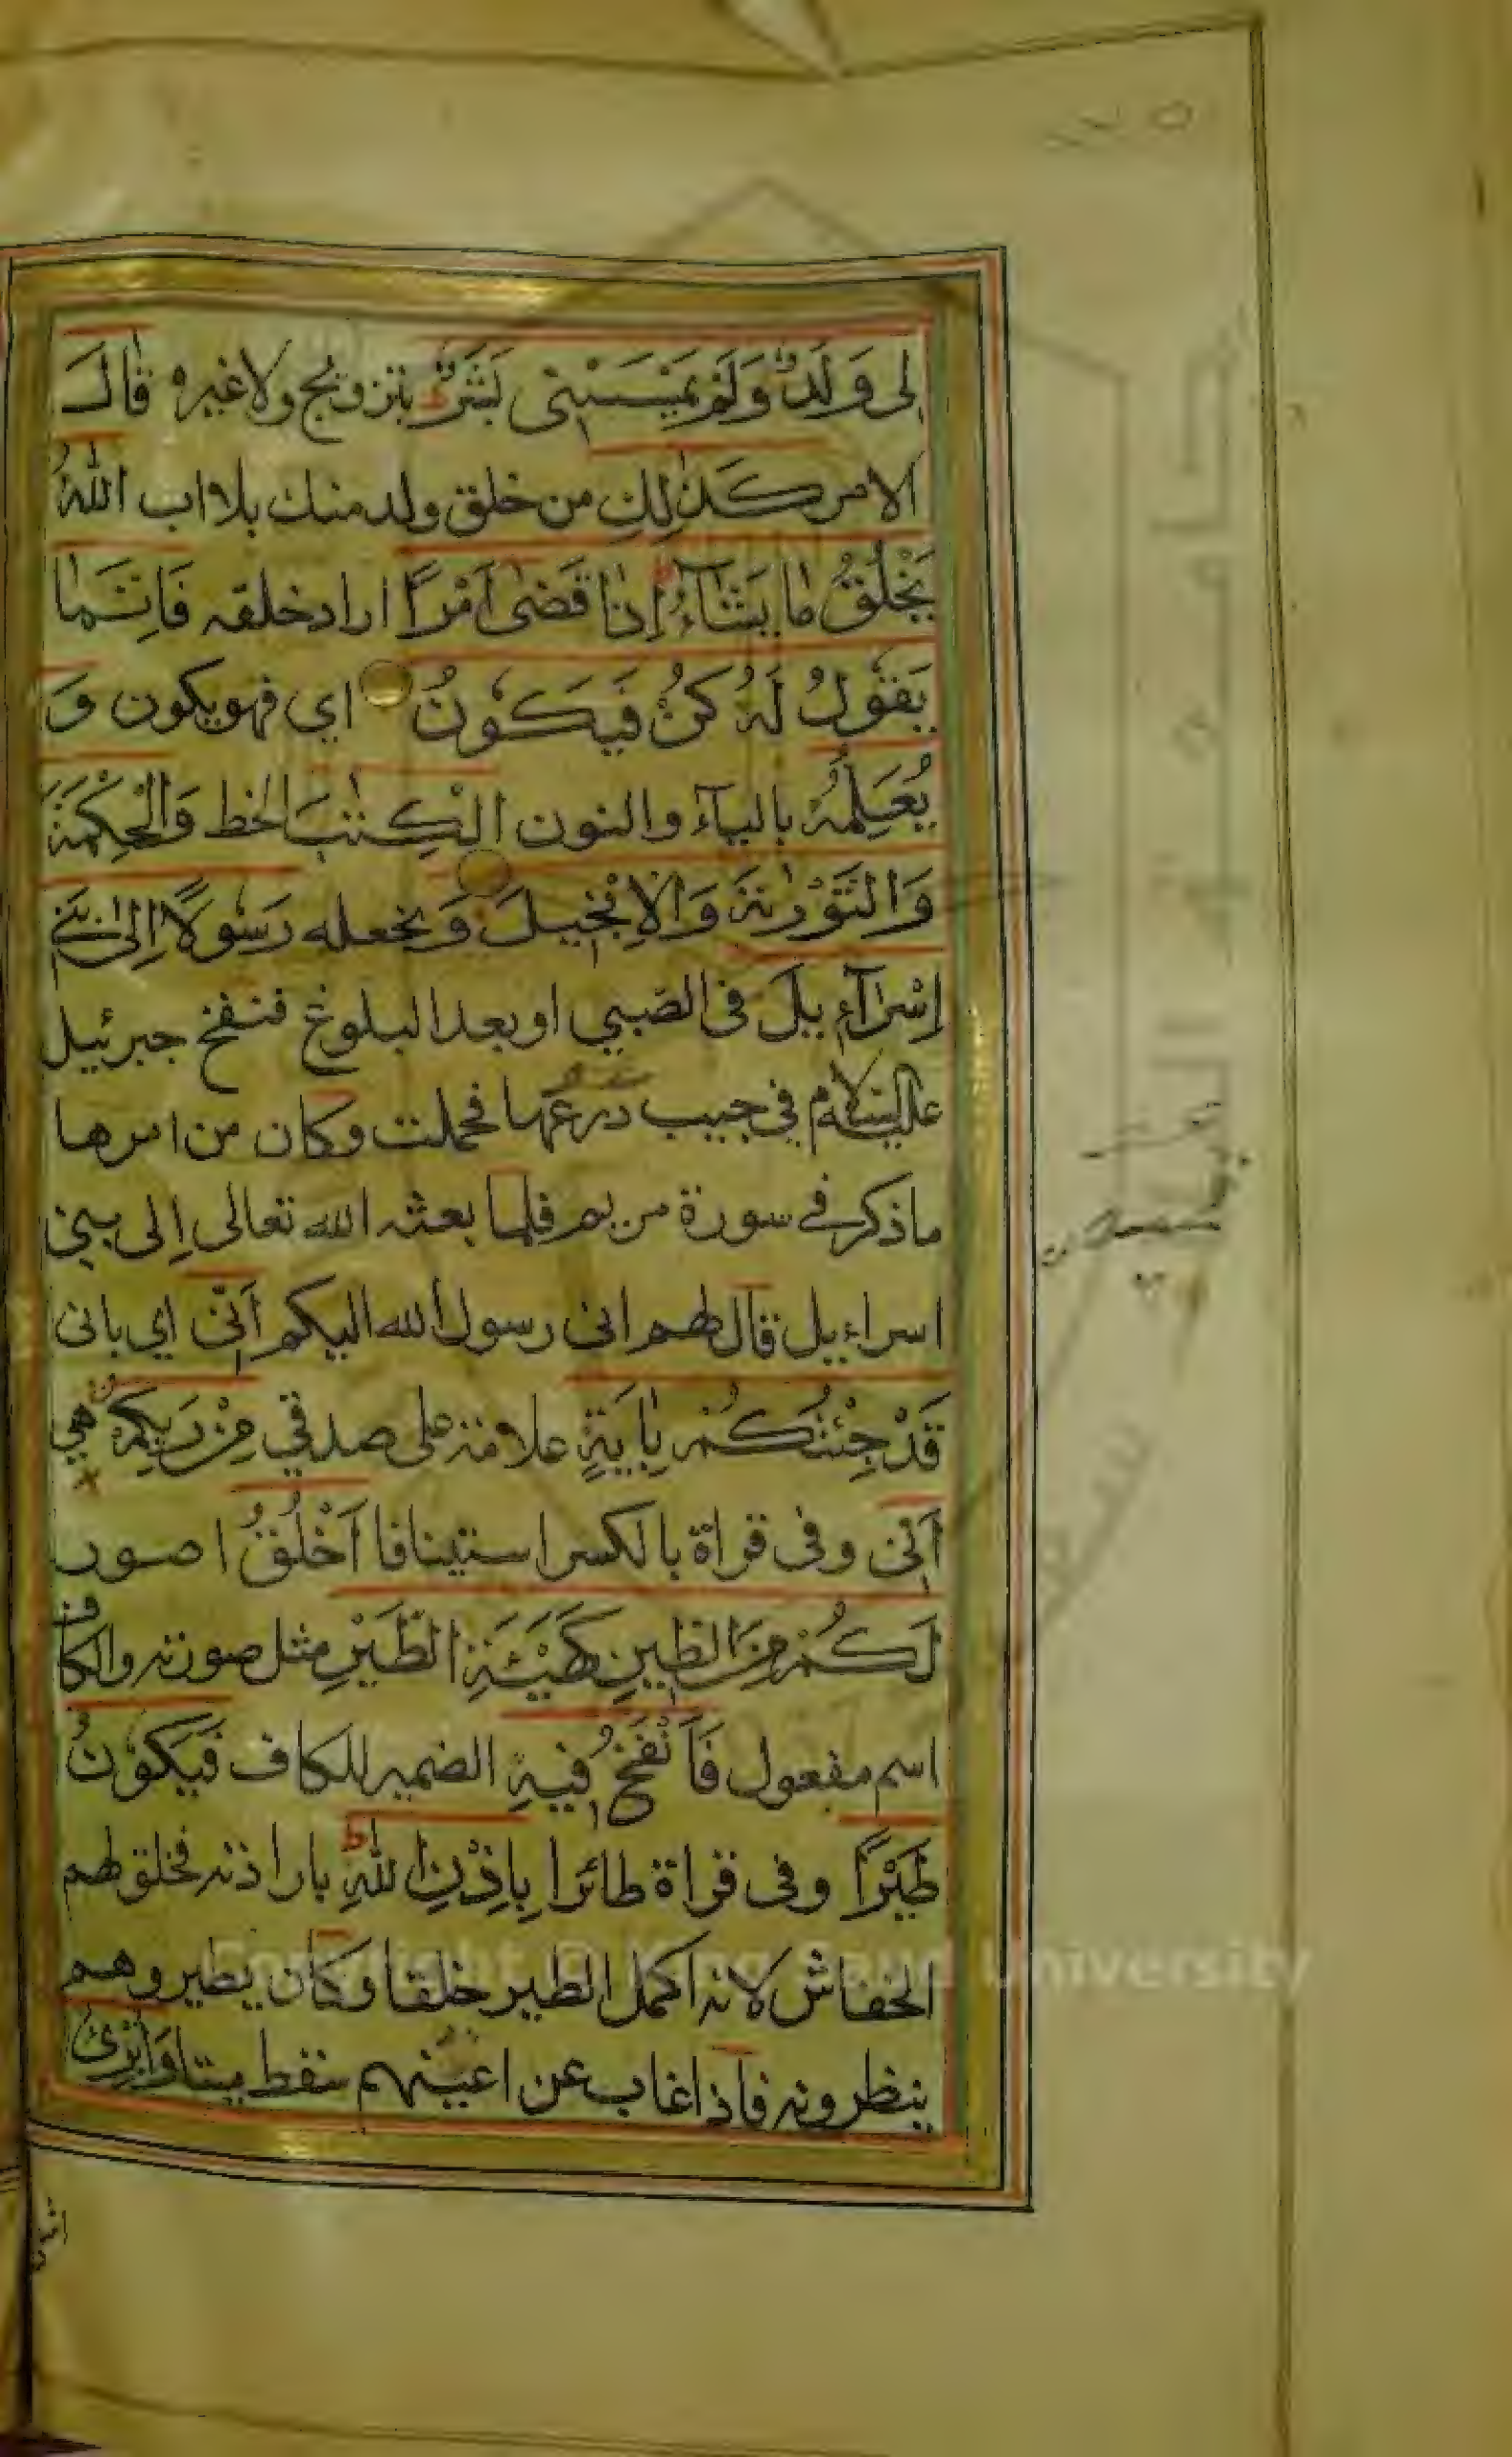 ١٢٥
لِى وَلَدٌ وَلَمْ يَمْسَسْنِى بَشَرٌ ط بتزويج ولا غيره قَالَ
الامر كَذٰلِكِ من خلق ولد منك بلا اب اللّٰهُ
يَخْلُقُ مَا يَشَآءُ ط اِذَا قَضٰى اَمْرًا اراد خلقه فَاِنَّمَا
يَقُوْلُ لَهُ كُنْ فَيَكُوْنُ اي فهو يكون وَ
يُعَلِّمُهُ بالياء والنون الْكِتٰبَ الخط وَالْحِكْمَةَ
وَالتَّوْرٰىةَ وَالْاِنْجِيلَ وَ نجعله رَسُولًا اِلٰى بَنِى
اِسْرَآءِيلَ فى الصبي او بعد البلوغ فنفخ جبرئيل
عليه السلام في جيب درعها فحملت وكان من امرها
ما ذكر في سورة مريم فلما بعثه الله تعالى اِلى بني
اسراءيل قال لهم انى رسول الله اليكم اَنِّى اي بانى
قَدْ جِئْتُكُمْ بِاٰيَةٍ علامة على صدقي مِنْ رَبِّكُمْ هي
اَنِّى وفى قراة بالكسر استينافا اَخْلُقُ اصور
لَكُمْ مِنَ الطِّينِ كَهَيْئَةِ الطَّيْرِ مثل صورته والكاف
اسم مفعول فَاَنْفُخُ فِيهِ الضمير للكاف فَيَكُوْنُ
طَيْرًا وفى قراة طائرا بِاِذْنِ اللّٰهِ ط بارادته فخلق لهم
الخفاش لانه اكمل الطير خلقا وكان يطير وهم
ينظرونه فاذا غاب عن اعينهم سقط ميتا وَاُبْرِئُ
Copyright © King Saud University